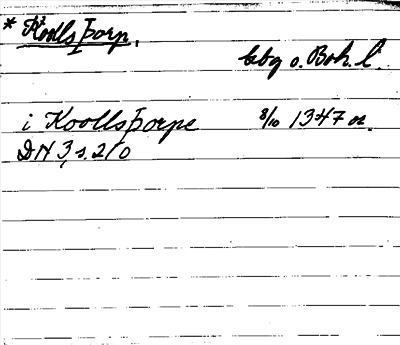 * Kolls þorp.
Gbg o. Boh. l.
i Koollsþorpe 8/10 1347 or.
DN 3, s. 210